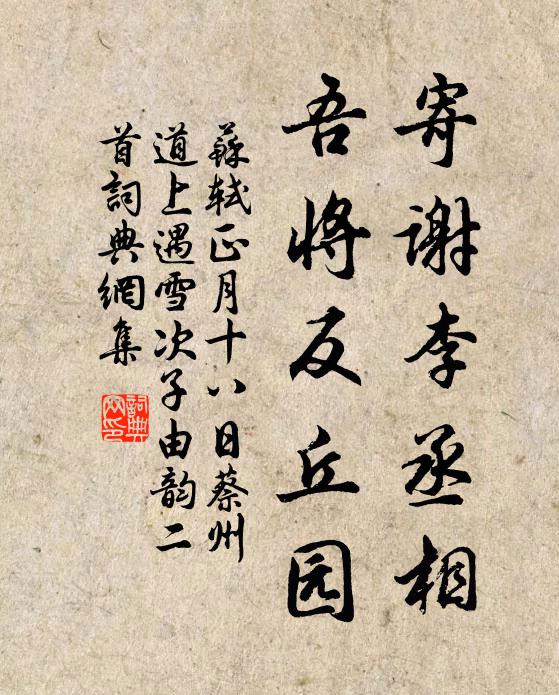 寄谢李丞相
吾将反丘园
蘇轼正月十八日蔡州
道上遇雪次子由韵二
首詞典網集
詞典
网印